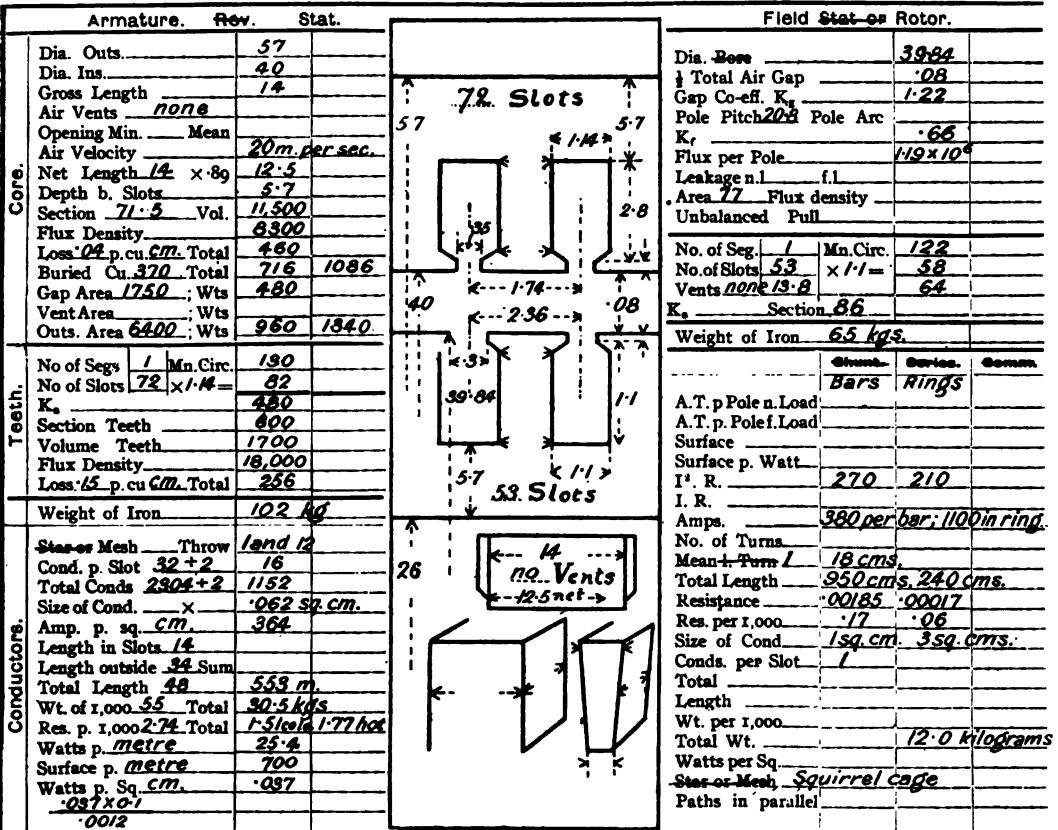 Armature. Rev. Stat.
Core.
Dia. Outs. 57
Dia. Ins. 40
Gross Length 14
Air Vents none
Opening Min. Mean
Air Velocity 20 m. per sec.
Net Length 14 × ·89 12·5
Depth b. Slots 5·7
Section 71·5 Vol. 11,500
Flux Density 8300
Loss ·04 p. cu cm. Total 460
Buried Cu. 370 Total 716 1086
Gap Area 1750 ; Wts 480
Vent Area ; Wts
Outs. Area 6400 ; Wts 960 1840
Teeth.
No of Segs 1 Mn. Circ. 130
No of Slots 72 × 1·14 = 82
Ks 480
Section Teeth 600
Volume Teeth 1700
Flux Density 18,000
Loss ·15 p. cu cm. Total 256
Weight of Iron 102 kg
Conductors.
Star or Mesh Throw 1 and 12
Cond. p. Slot 32 ÷ 2 16
Total Conds 2304 ÷ 2 1152
Size of Cond. × ·062 sq. cm.
Amp. p. sq. cm. 364
Length in Slots 14
Length outside 34 Sum
Total Length 48 553 m.
Wt. of 1,000 55 Total 30·5 kgs
Res. p. 1,000 2·74 Total 1·51 cold 1·77 hot
Watts p. metre 25·4
Surface p. metre 700
Watts p. Sq. cm. ·037
·037 × 0·1
·0012
72 Slots
57
5·7
1·14
2·8
·35
1·74
·08
40
2·36
·3
39·84
1·1
5·7
1·1
53 Slots
26
14
no Vents
12·5 net
Field Stat or Rotor.
Dia. Bore 39·84
½ Total Air Gap ·08
Gap Co-eff. Kg 1·22
Pole Pitch 20·8 Pole Arc
Kf ·66
Flux per Pole 1·19 × 10⁶
Leakage n.l f.l.
Area 77 Flux density
Unbalanced Pull
No. of Seg. 1 Mn. Circ. 122
No. of Slots 53 × 1·1 = 58
Vents none 13·8 64
Ks Section 86
Weight of Iron 65 kgs.
Shunt. Series. Comm.
Bars Rings
A.T. p Pole n. Load
A.T. p. Pole f. Load
Surface
Surface p. Watt
I². R. 270 210
I. R.
Amps. 380 per bar; 1100 in ring
No. of Turns
Mean l. Turn l 18 cms.
Total Length 950 cms, 240 cms.
Resistance ·00185 ·00017
Res. per 1,000 ·17 ·06
Size of Cond 1 sq. cm 3 sq. cms.
Conds. per Slot 1
Total
Length
Wt. per 1,000
Total Wt. 12·0 kilograms
Watts per Sq
Star or Mesh Squirrel cage
Paths in parallel